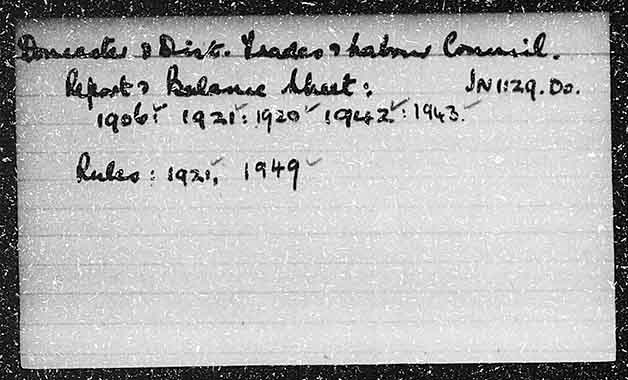 Doncaster & Dist. Trades & Labour Council.
Report & Balance Sheet: JN1:29. Do.
1906: 1921: 1920 1942: 1943.
Rules: 1921, 1949